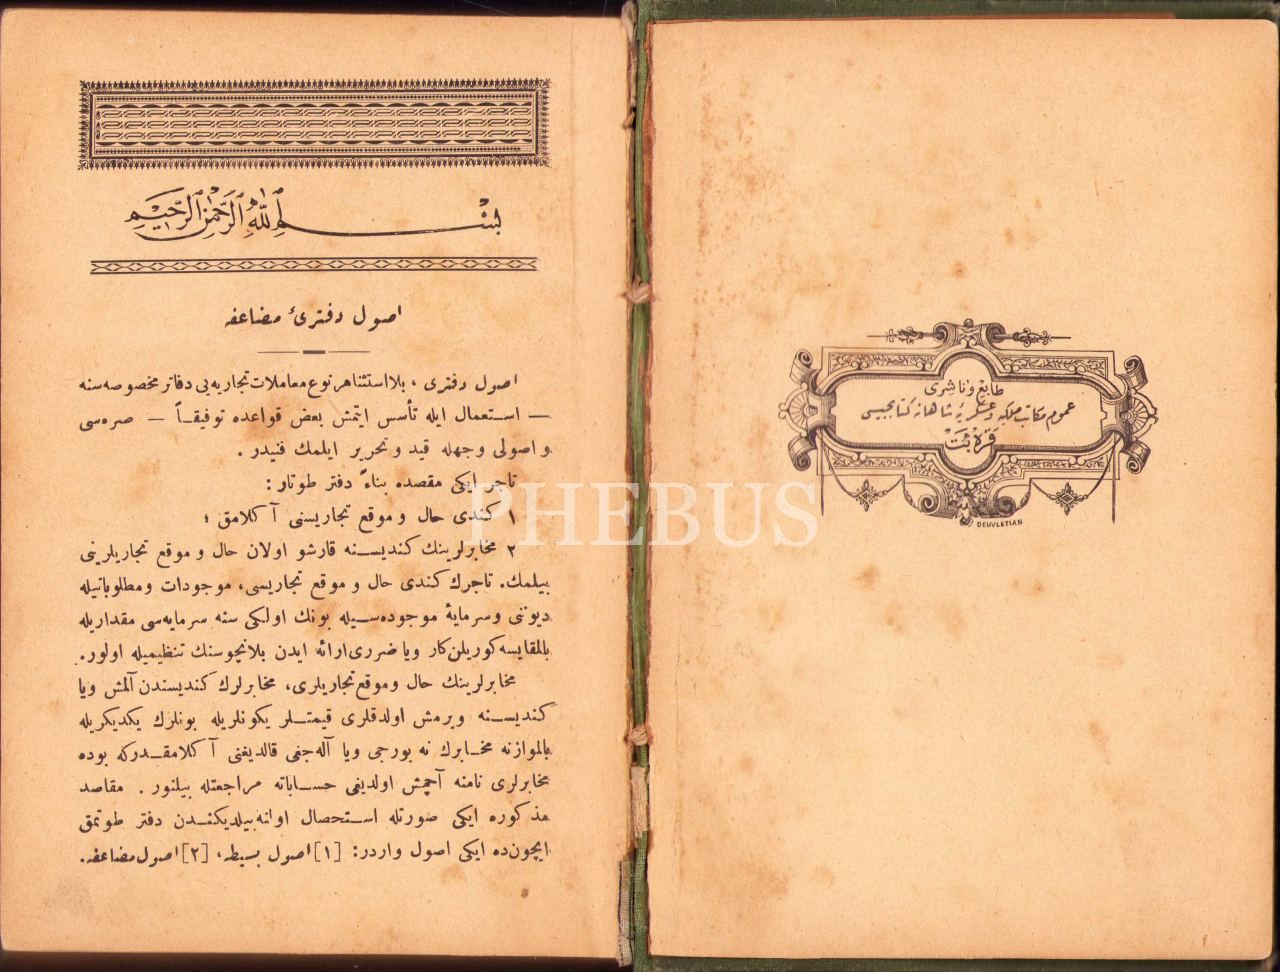 طابع و ناشری
عموم مکاتب ملکیه و عسکریهٔ شاهانه کتابجیسی
قره بت
DEUVLETIAN
بسم الله الرحمن الرحیم
اصول دفتری مضاعفه
اصول دفتری ، بلااستثنا هر نوع معاملات تجاریه‌یی دفاتر مخصوصه سنه
— استعمال ایله تأسس ایتمش بعض قواعده توفیقاً — صره‌سی
و اصولی وجهله قید و تحریر ایلمك فنیدر .
تاجر ایکی مقصده بناءً دفتر طوتار :
۱ کندی حال و موقع تجاریسنی آکلامق ؛
۲ مخابرلرینك کندیسنه قارشو اولان حال و موقع تجاریلرینی
بیلمك. تاجرك کندی حال و موقع تجاریسی، موجودات و مطلوباتیله
دیوننی و سرمایهٔ موجوده‌سیله بونك اولکی سنه سرمایه‌سی مقداریله
بالمقایسه کوریلن کار ویا ضرری ارائه ایدن بلانچوسنك تنظیمیله اولور.
مخابرلرینك حال و موقع تجاریلری، مخابرلرك کندیسندن آلمش ویا
کندیسنه ویرمش اولدقلری قیمتلر یکونلریله بونلرك یکدیکریله
بالموازنه مخابرك نه بورجی ویا آله‌جغی قالدیغنی آکلامقدرکه بوده
مخابرلری نامنه آچمش اولدیغی حساباته مراجعتله بیلنور . مقاصد
مذکوره ایکی صورتله استحصال اولنه‌بیلدیکندن دفتر طوتمق
ایچون‌ده ایکی اصول واردر: [۱] اصول بسیطه، [۲] اصول مضاعفه.
PHEBUS